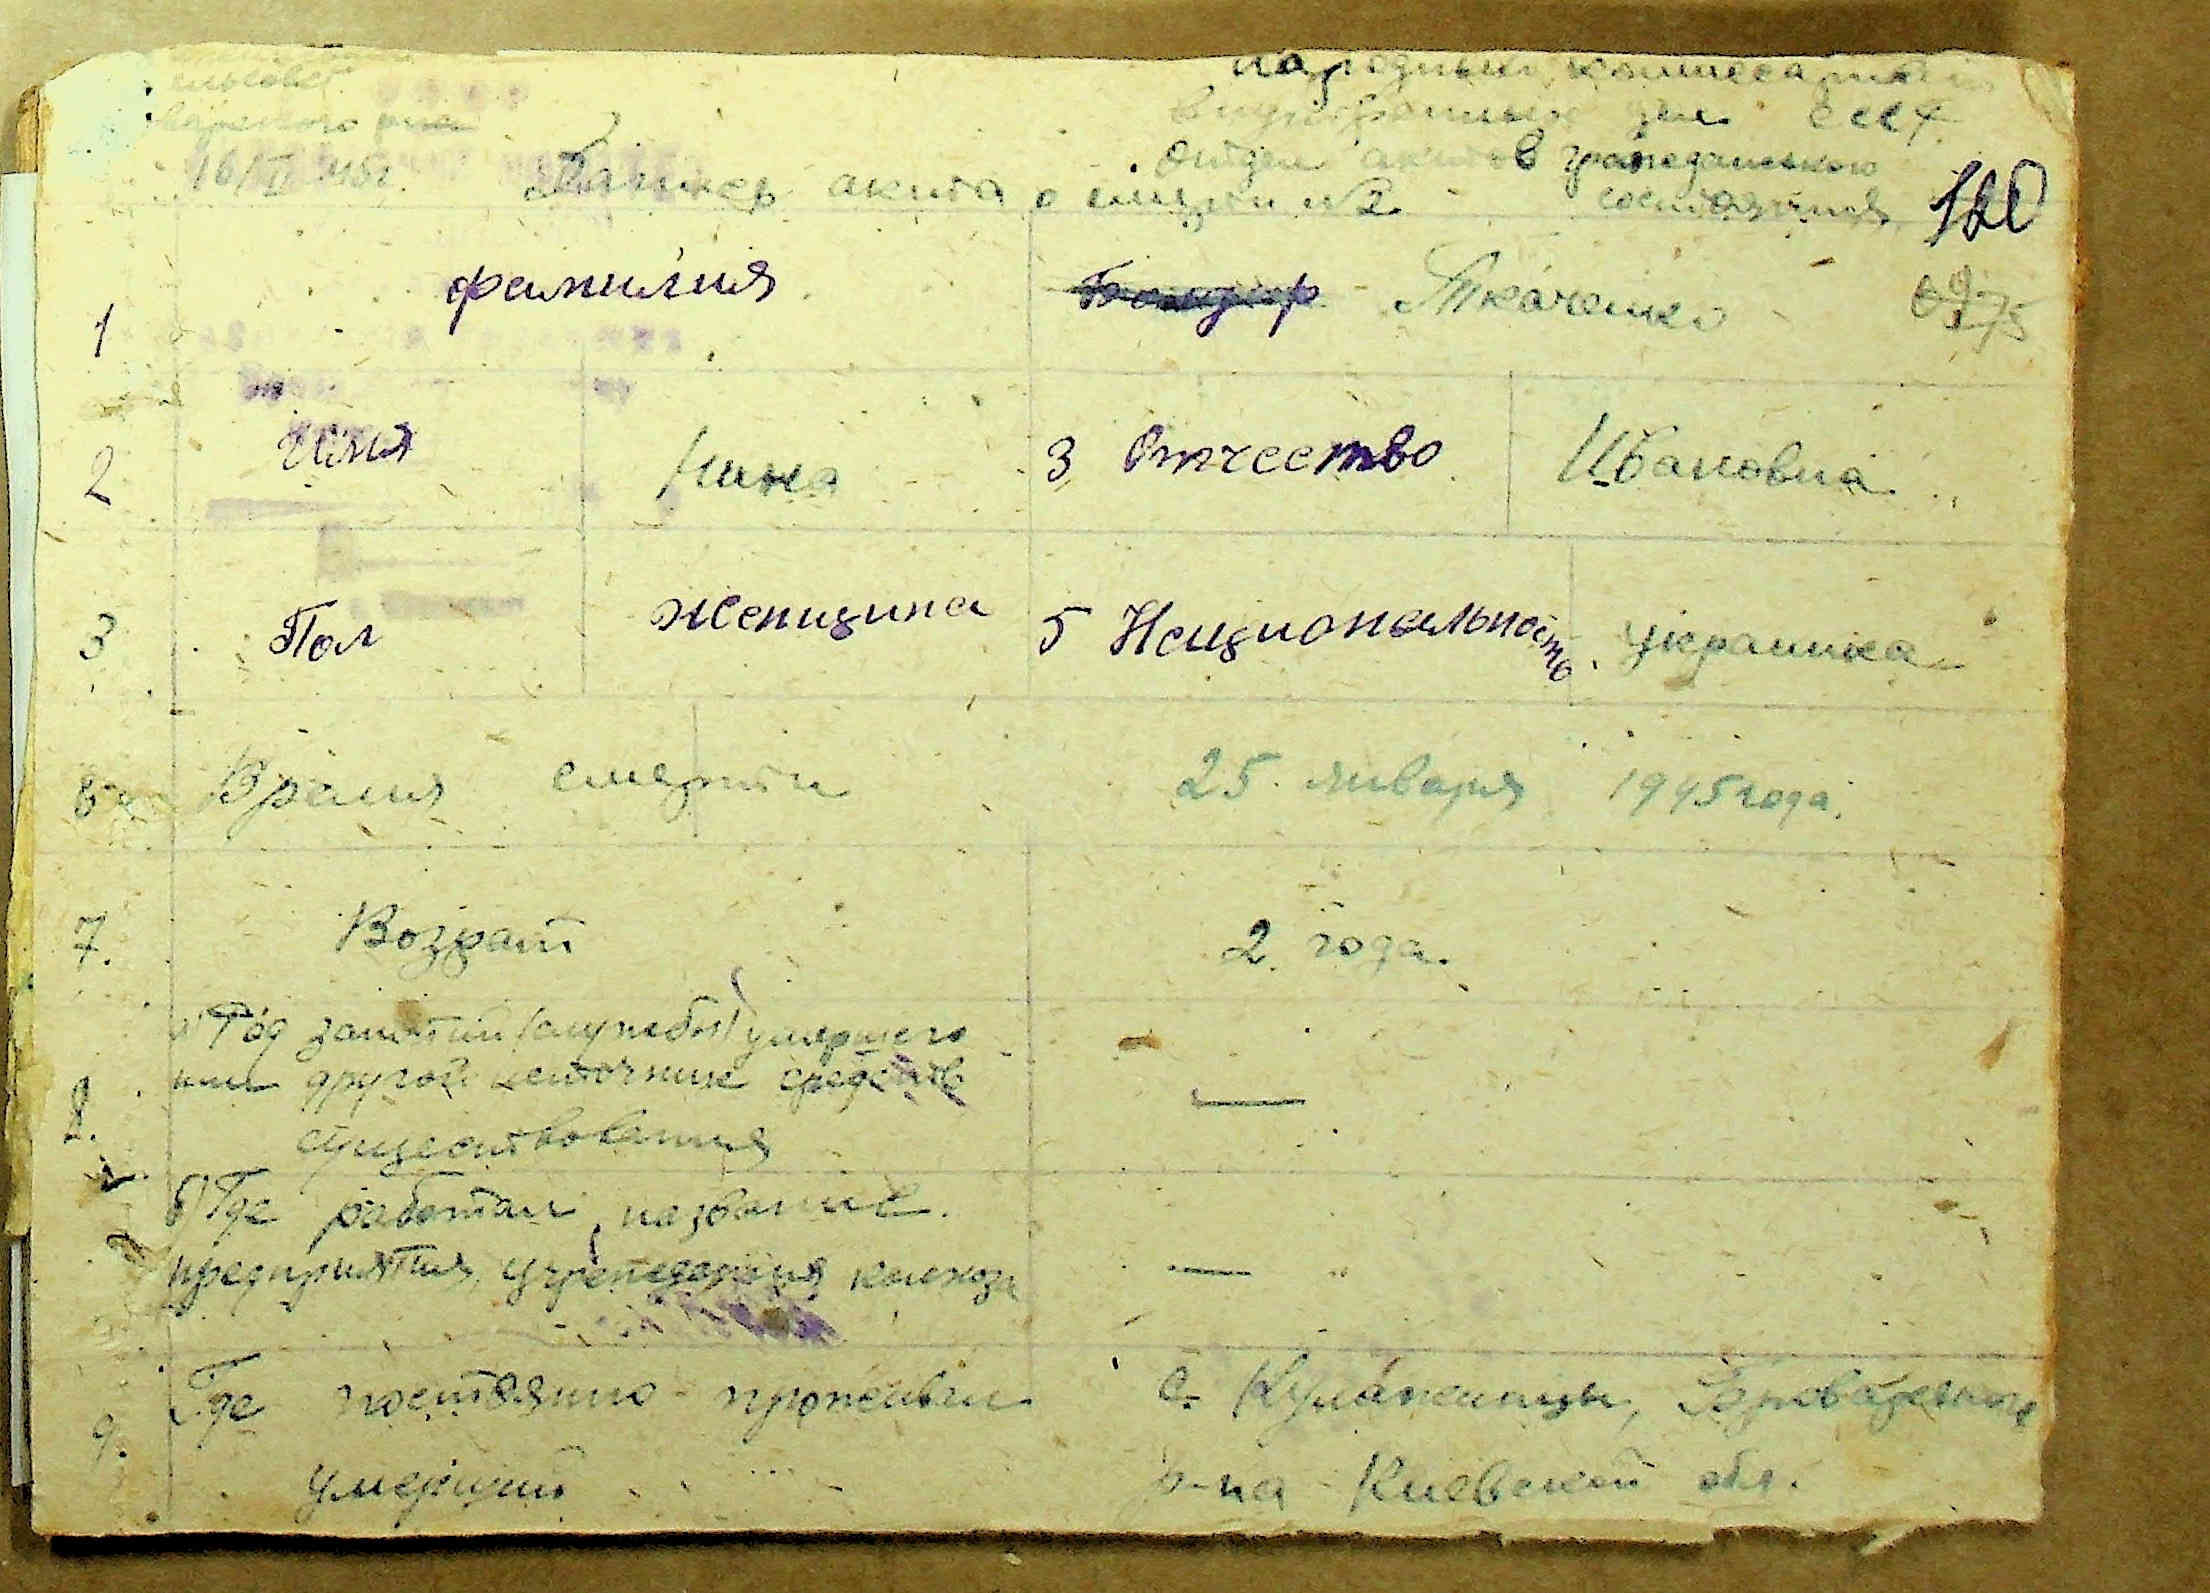 народный комиссариат
ельсовет
внутренных дел СССР
Отдел актов гражданского
состояния
16/II 45г. Запись акта о смерти №2
120
1 фамилия Бондар Ткаченко
2 Имя Нина 3 Отчество Ивановна
3 Пол женщина 5 Национальность украинка
6 Время смерти 25 января 1945 года.
7. Возраст 2 года.
8. а) Род занятий (службы) умершего
или другой источник средств
существования —
б) Где работал, название
предприятия, учреждения колхоза —
9. Где постоянно проживал с. Кулаженцы, Яроваренского
умерший р-на Киевской обл.